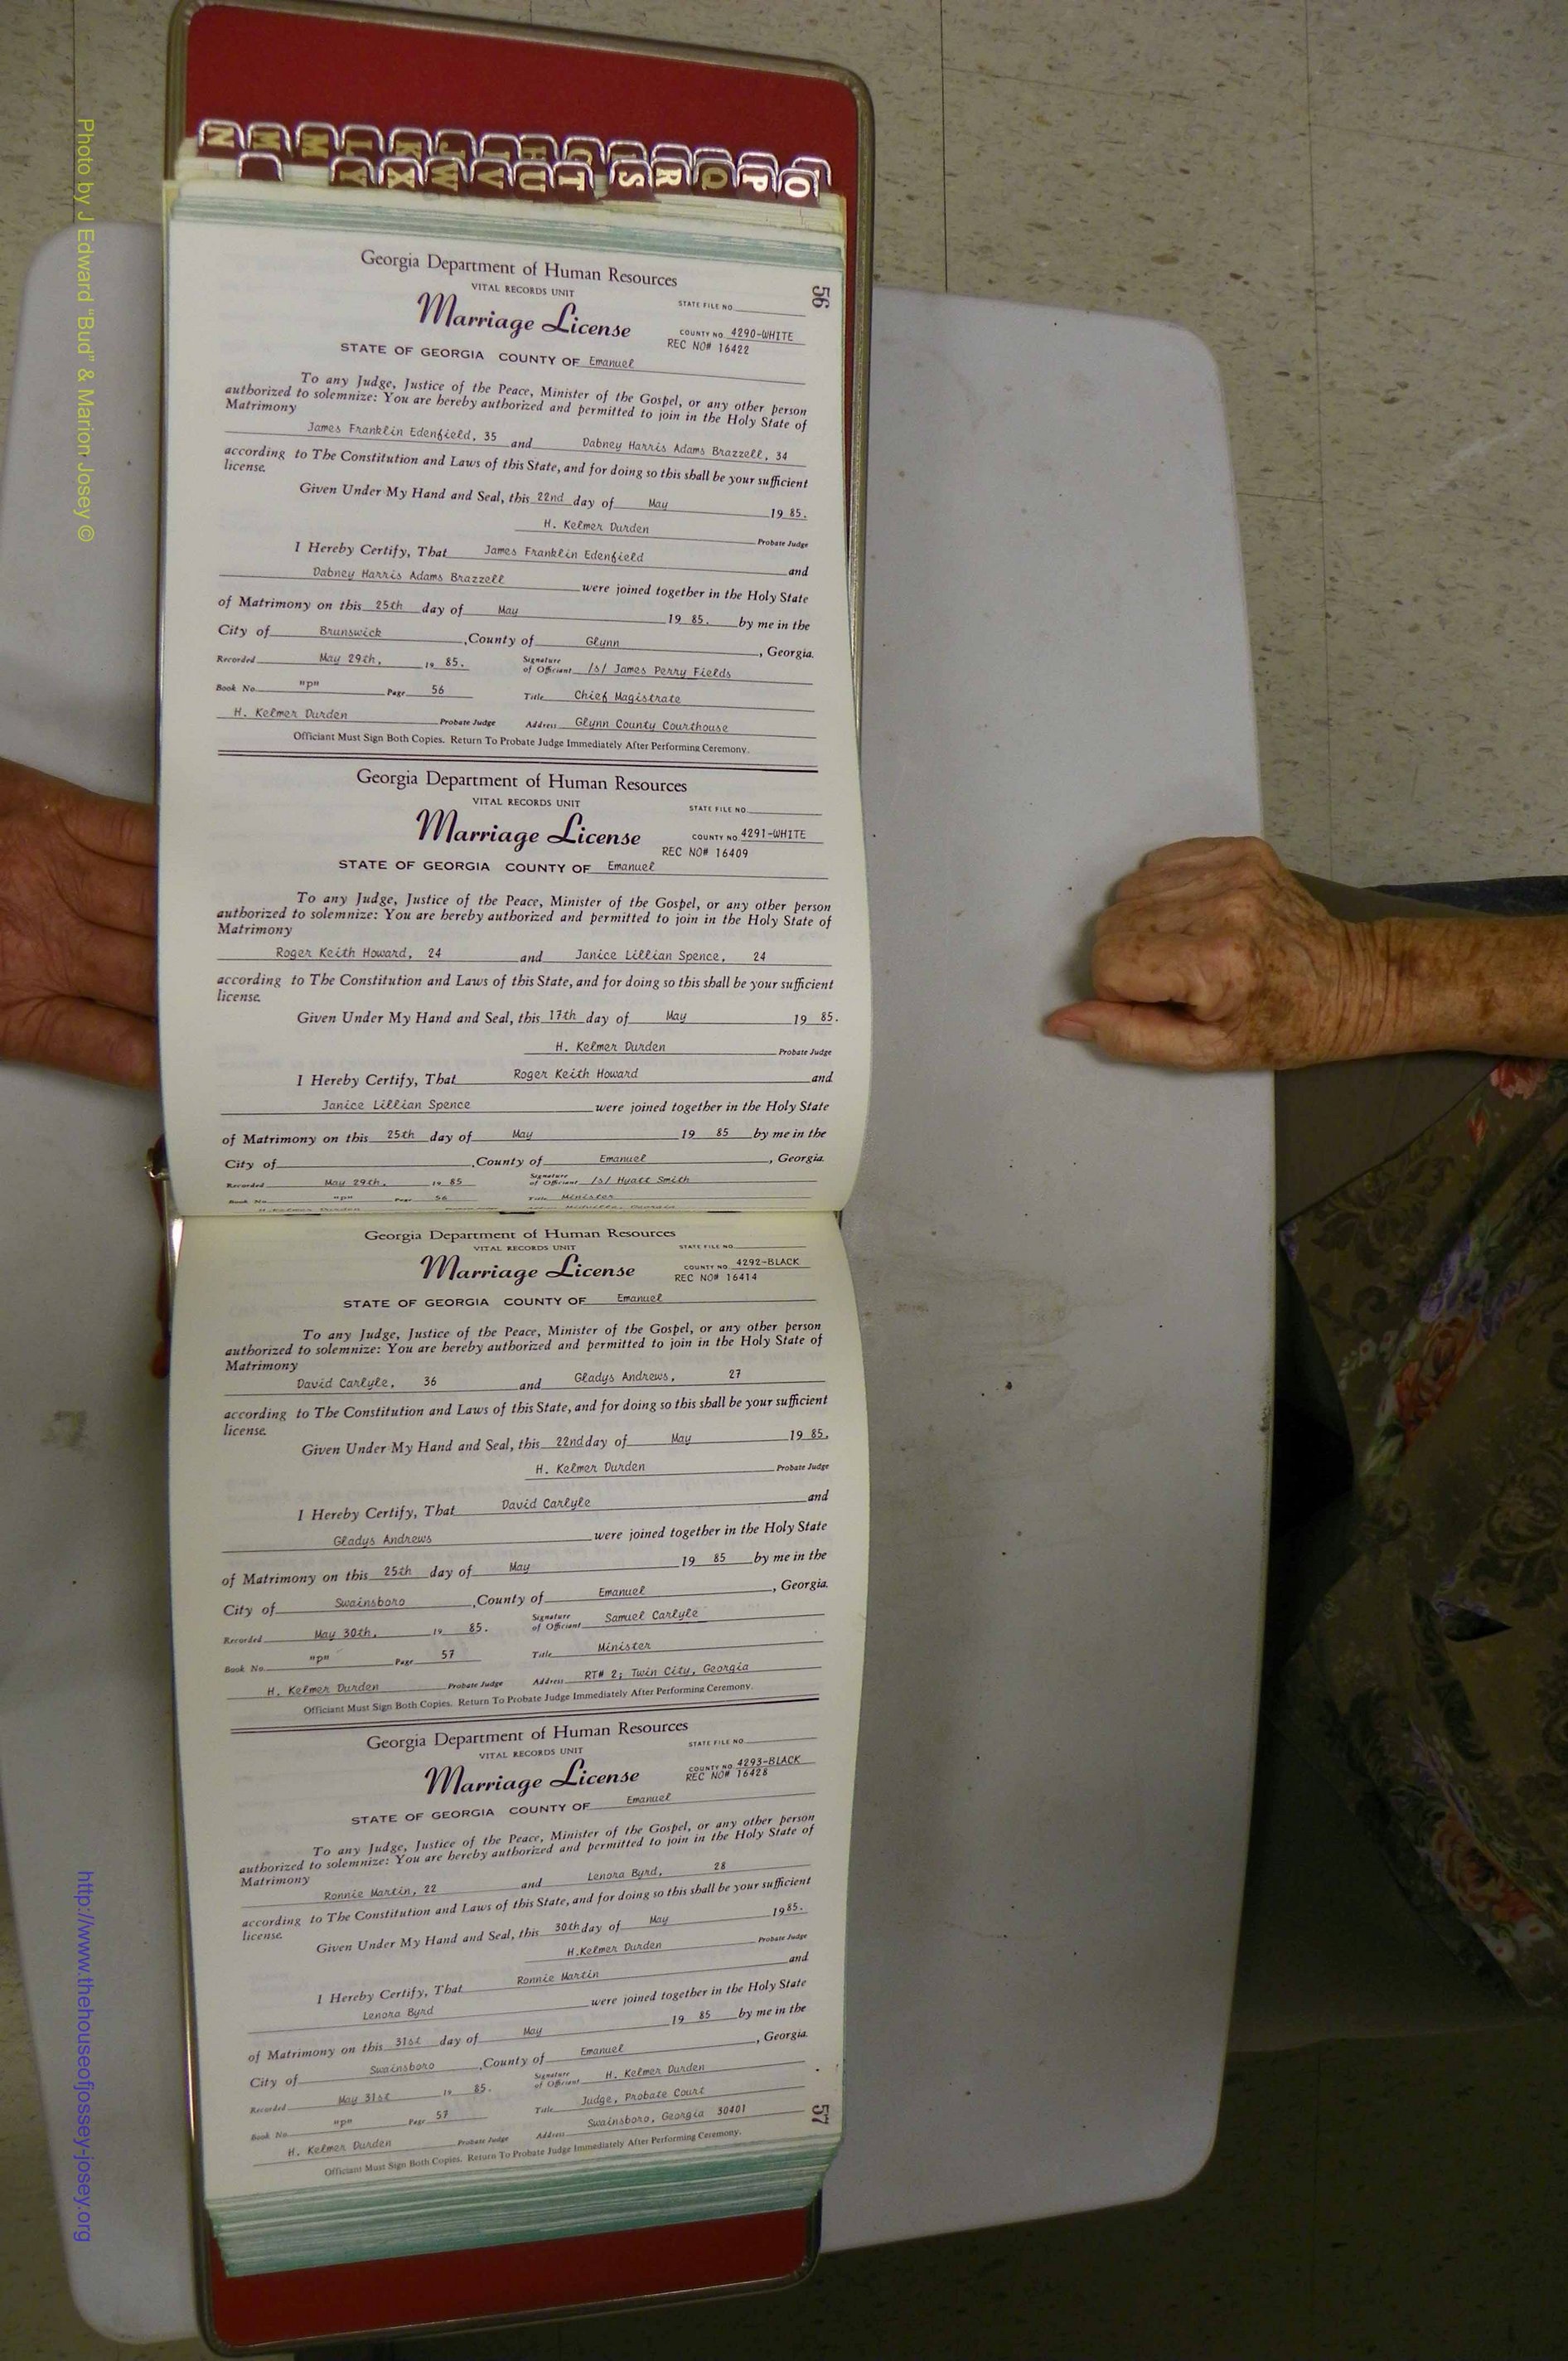 Photo by J Edward “Bud” & Marion Josey ©
N M M L K J I H G R Q P O
Y X W V U T S R Q P O
Georgia Department of Human Resources
VITAL RECORDS UNIT
STATE FILE NO.
56
Marriage License
COUNTY NO. 4290-WHITE
REC NO# 16422
STATE OF GEORGIA COUNTY OF Emanuel
To any Judge, Justice of the Peace, Minister of the Gospel, or any other person
authorized to solemnize: You are hereby authorized and permitted to join in the Holy State of
Matrimony
James Franklin Edenfield, 35 and Dabney Harris Adams Brazzell, 34
according to The Constitution and Laws of this State, and for doing so this shall be your sufficient
license.
Given Under My Hand and Seal, this 22nd day of May 19 85.
H. Kelmer Durden Probate Judge
I Hereby Certify, That James Franklin Edenfield and
Dabney Harris Adams Brazzell were joined together in the Holy State
of Matrimony on this 25th day of May 19 85. by me in the
City of Brunswick, County of Glynn, Georgia.
Recorded May 29th, 19 85. Signature of Officiant /s/ James Perry Fields
Book No. "p" Page 56 Title Chief Magistrate
H. Kelmer Durden Probate Judge Address Glynn County Courthouse
Officiant Must Sign Both Copies. Return To Probate Judge Immediately After Performing Ceremony.
Georgia Department of Human Resources
VITAL RECORDS UNIT
STATE FILE NO.
Marriage License
COUNTY NO. 4291-WHITE
REC NO# 16409
STATE OF GEORGIA COUNTY OF Emanuel
To any Judge, Justice of the Peace, Minister of the Gospel, or any other person
authorized to solemnize: You are hereby authorized and permitted to join in the Holy State of
Matrimony
Roger Keith Howard, 24 and Janice Lillian Spence, 24
according to The Constitution and Laws of this State, and for doing so this shall be your sufficient
license.
Given Under My Hand and Seal, this 17th day of May 19 85.
H. Kelmer Durden Probate Judge
I Hereby Certify, That Roger Keith Howard and
Janice Lillian Spence were joined together in the Holy State
of Matrimony on this 25th day of May 19 85 by me in the
City of , County of Emanuel, Georgia.
Recorded May 29th, 19 85 Signature of Officiant /s/ Hyatt Smith
Book No. "p" Page 56 Title Minister
H. Kelmer Durden
Georgia Department of Human Resources
VITAL RECORDS UNIT
STATE FILE NO.
Marriage License
COUNTY NO. 4292-BLACK
REC NO# 16414
STATE OF GEORGIA COUNTY OF Emanuel
To any Judge, Justice of the Peace, Minister of the Gospel, or any other person
authorized to solemnize: You are hereby authorized and permitted to join in the Holy State of
Matrimony
David Carlyle, 36 and Gladys Andrews, 27
according to The Constitution and Laws of this State, and for doing so this shall be your sufficient
license.
Given Under My Hand and Seal, this 22nd day of May 19 85.
H. Kelmer Durden Probate Judge
I Hereby Certify, That David Carlyle and
Gladys Andrews were joined together in the Holy State
of Matrimony on this 25th day of May 19 85 by me in the
City of Swainsboro, County of Emanuel, Georgia.
Recorded May 30th, 19 85. Signature of Officiant Samuel Carlyle
Book No. "p" Page 57 Title Minister
H. Kelmer Durden Probate Judge Address RT# 2; Twin City, Georgia
Officiant Must Sign Both Copies. Return To Probate Judge Immediately After Performing Ceremony.
Georgia Department of Human Resources
VITAL RECORDS UNIT
STATE FILE NO.
Marriage License
COUNTY NO. 4293-BLACK
REC NO# 16428
STATE OF GEORGIA COUNTY OF Emanuel
To any Judge, Justice of the Peace, Minister of the Gospel, or any other person
authorized to solemnize: You are hereby authorized and permitted to join in the Holy State of
Matrimony
Ronnie Martin, 22 and Lenora Byrd, 28
according to The Constitution and Laws of this State, and for doing so this shall be your sufficient
license.
Given Under My Hand and Seal, this 30th day of May 19 85.
H.Kelmer Durden Probate Judge
I Hereby Certify, That Ronnie Martin and
Lenora Byrd were joined together in the Holy State
of Matrimony on this 31st day of May 19 85 by me in the
City of Swainsboro, County of Emanuel, Georgia.
Recorded May 31st 19 85. Signature of Officiant H. Kelmer Durden
Book No. "p" Page 57 Title Judge, Probate Court
H. Kelmer Durden Probate Judge Address Swainsboro, Georgia 30401
Officiant Must Sign Both Copies. Return To Probate Judge Immediately After Performing Ceremony.
57
http://www.thehouseofjossey-josey.org